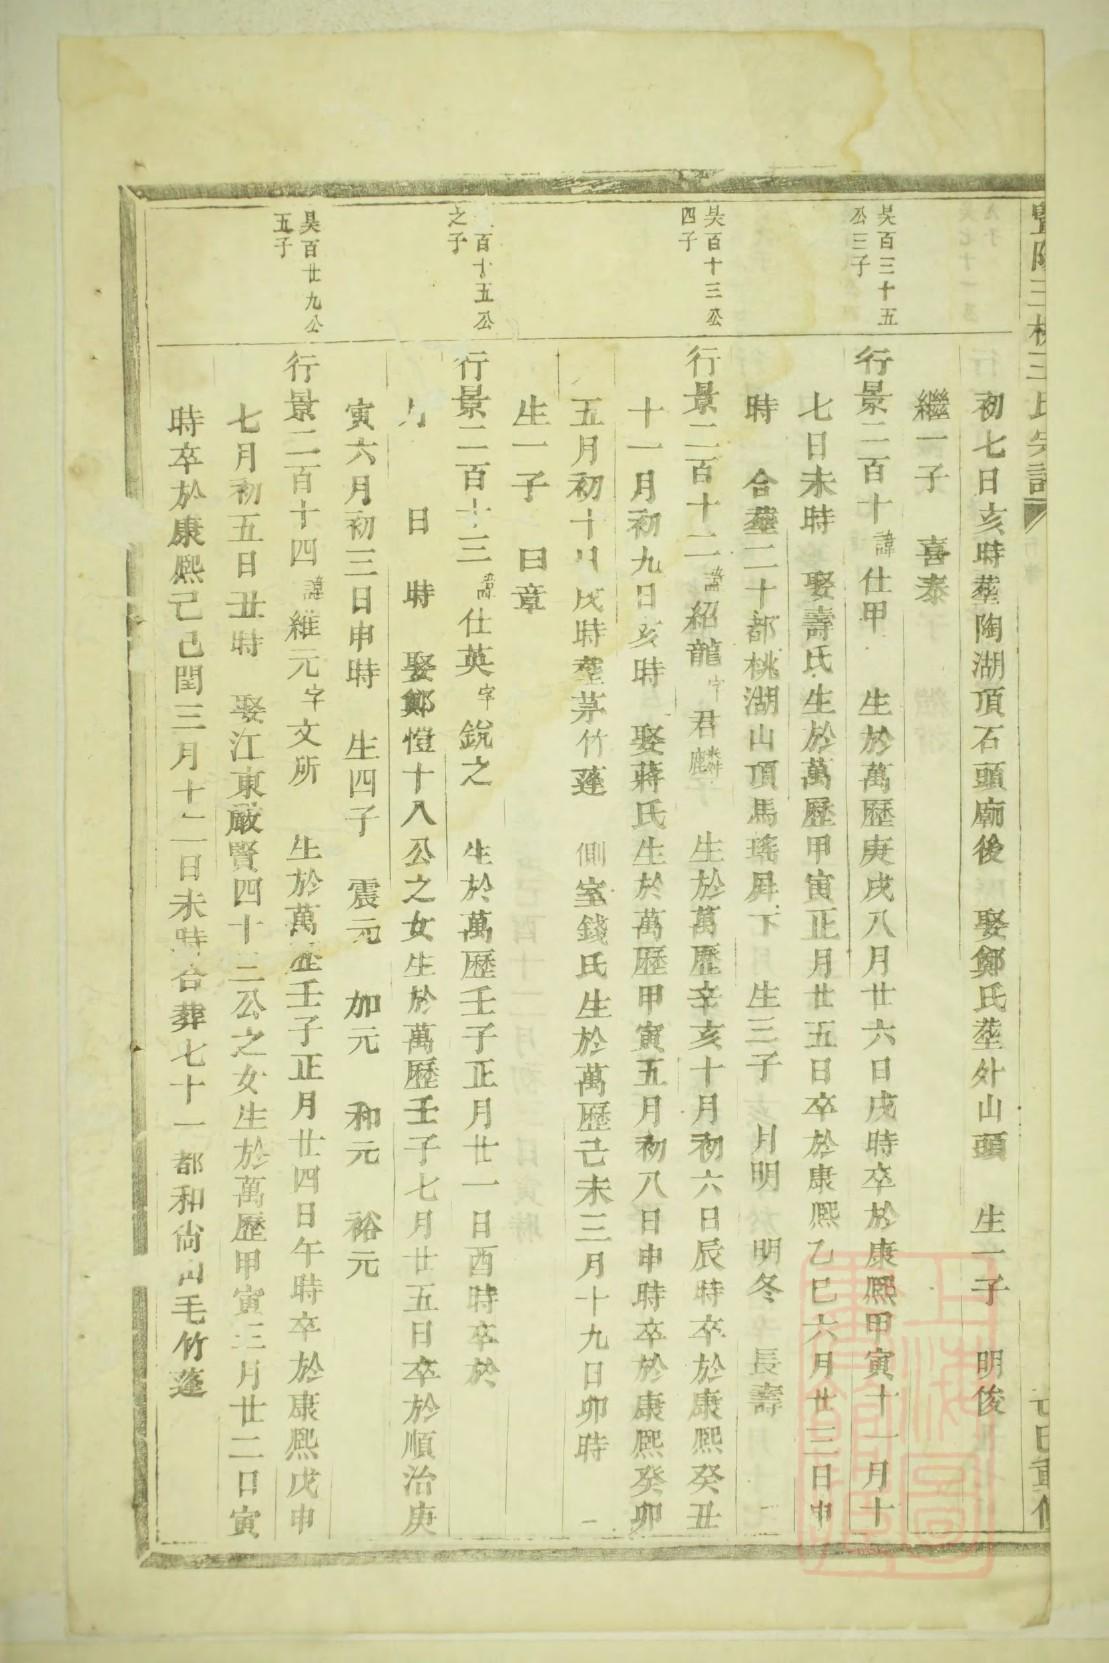 初七日亥時塟陶湖頂石頭廟後 娶鄭氏塟外山頭 生一子 明俊
繼一子 喜泰
昊百三十五
公三子
行景二百十諱仕甲 生於萬歷庚戌八月廿六日戌時卒於康熙甲寅十一月十
七日未時 娶壽氏生於萬歷甲寅正月廿五日卒於康熙乙巳六月廿三日申
時 合塟二十都桃湖山頂馬瑤屛下 生三子 月明 明冬 長壽
昊百十三公
四子
行景二百十二諱紹龍字君麟 生於萬歷辛亥十月初六日辰時卒於康熙癸丑
十一月初九日亥時 娶蔣氏生於萬歷甲寅五月初八日申時卒於康熙癸卯
五月初十日戌時塟茅竹蓬 側室錢氏生於萬歷己未三月十九日卯時
生一子 日章
百十五公
之子
行景二百十三諱仕英字銳之 生於萬歷壬子正月廿一日酉時卒於
月 日 時 娶鄭愷十八公之女生於萬歷壬子七月廿五日卒於順治庚
寅六月初三日申時 生四子 震元 加元 和元 裕元
昊百廿九公
五子
行景二百十四諱維元字文所 生於萬歷壬子正月廿四日午時卒於康熙戊申
七月初五日丑時 娶江東嚴賢四十三公之女生於萬歷甲寅三月廿二日寅
時卒於康熙己巳閏三月十二日未時合葬七十一都和尙山毛竹蓬